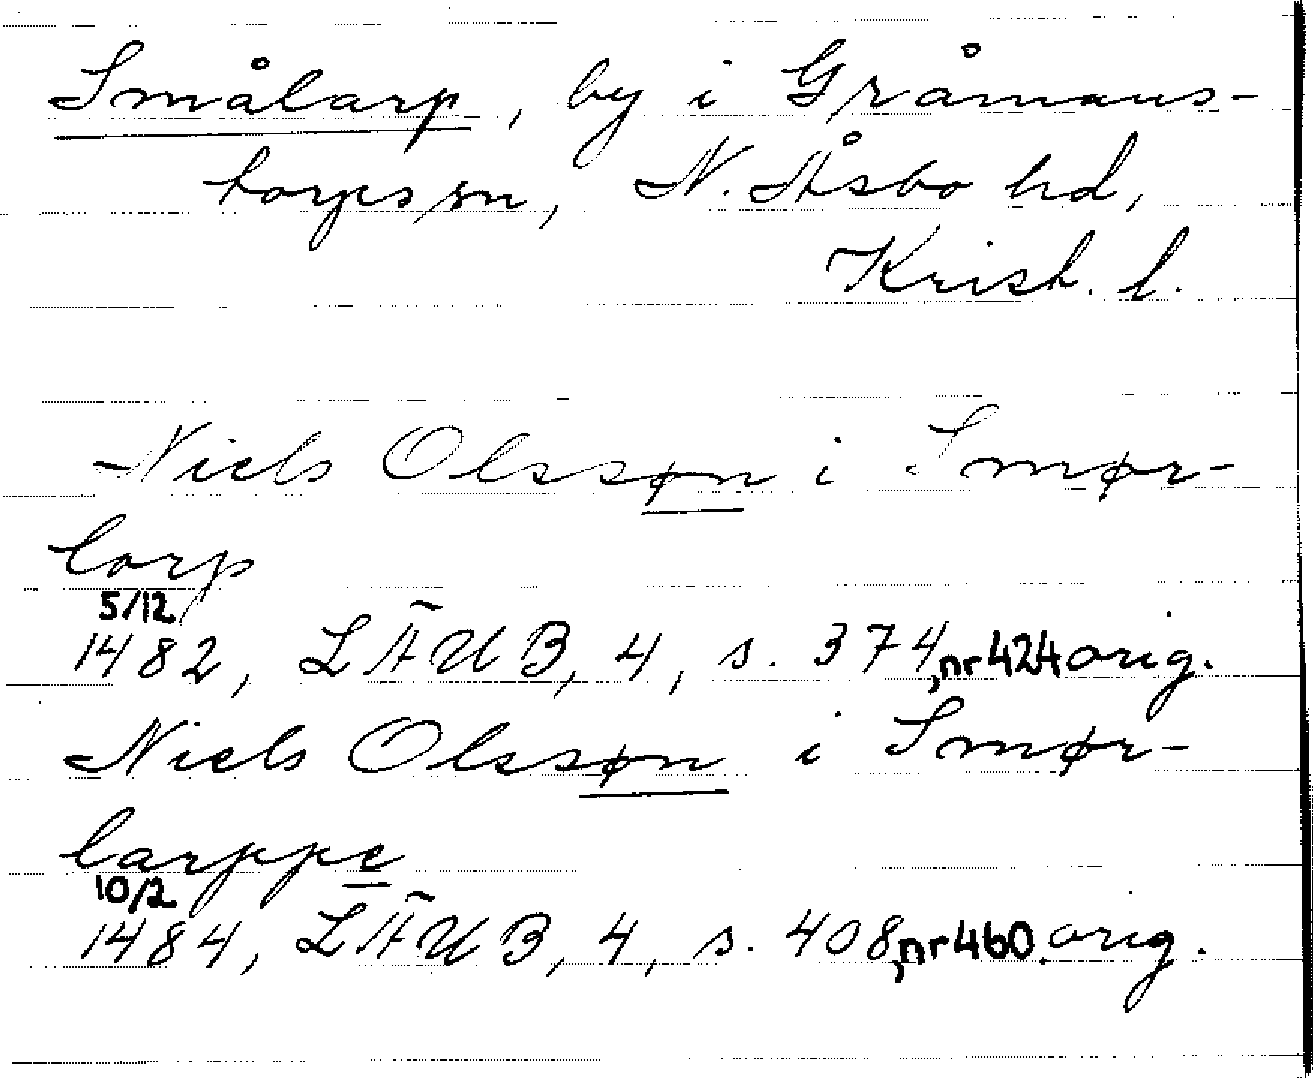 Smålarp, by i Gråmans-
torps sn, N. Åsbo hd,
Krist. l.
Niels Olssøn i Smør-
lorp
5/12
1482, LÄUB, 4, s. 374, nr 424 orig.
Niels Olssøn i Smør-
larppe
10/2
1484, LÄUB, 4, s. 408, nr 460. orig.